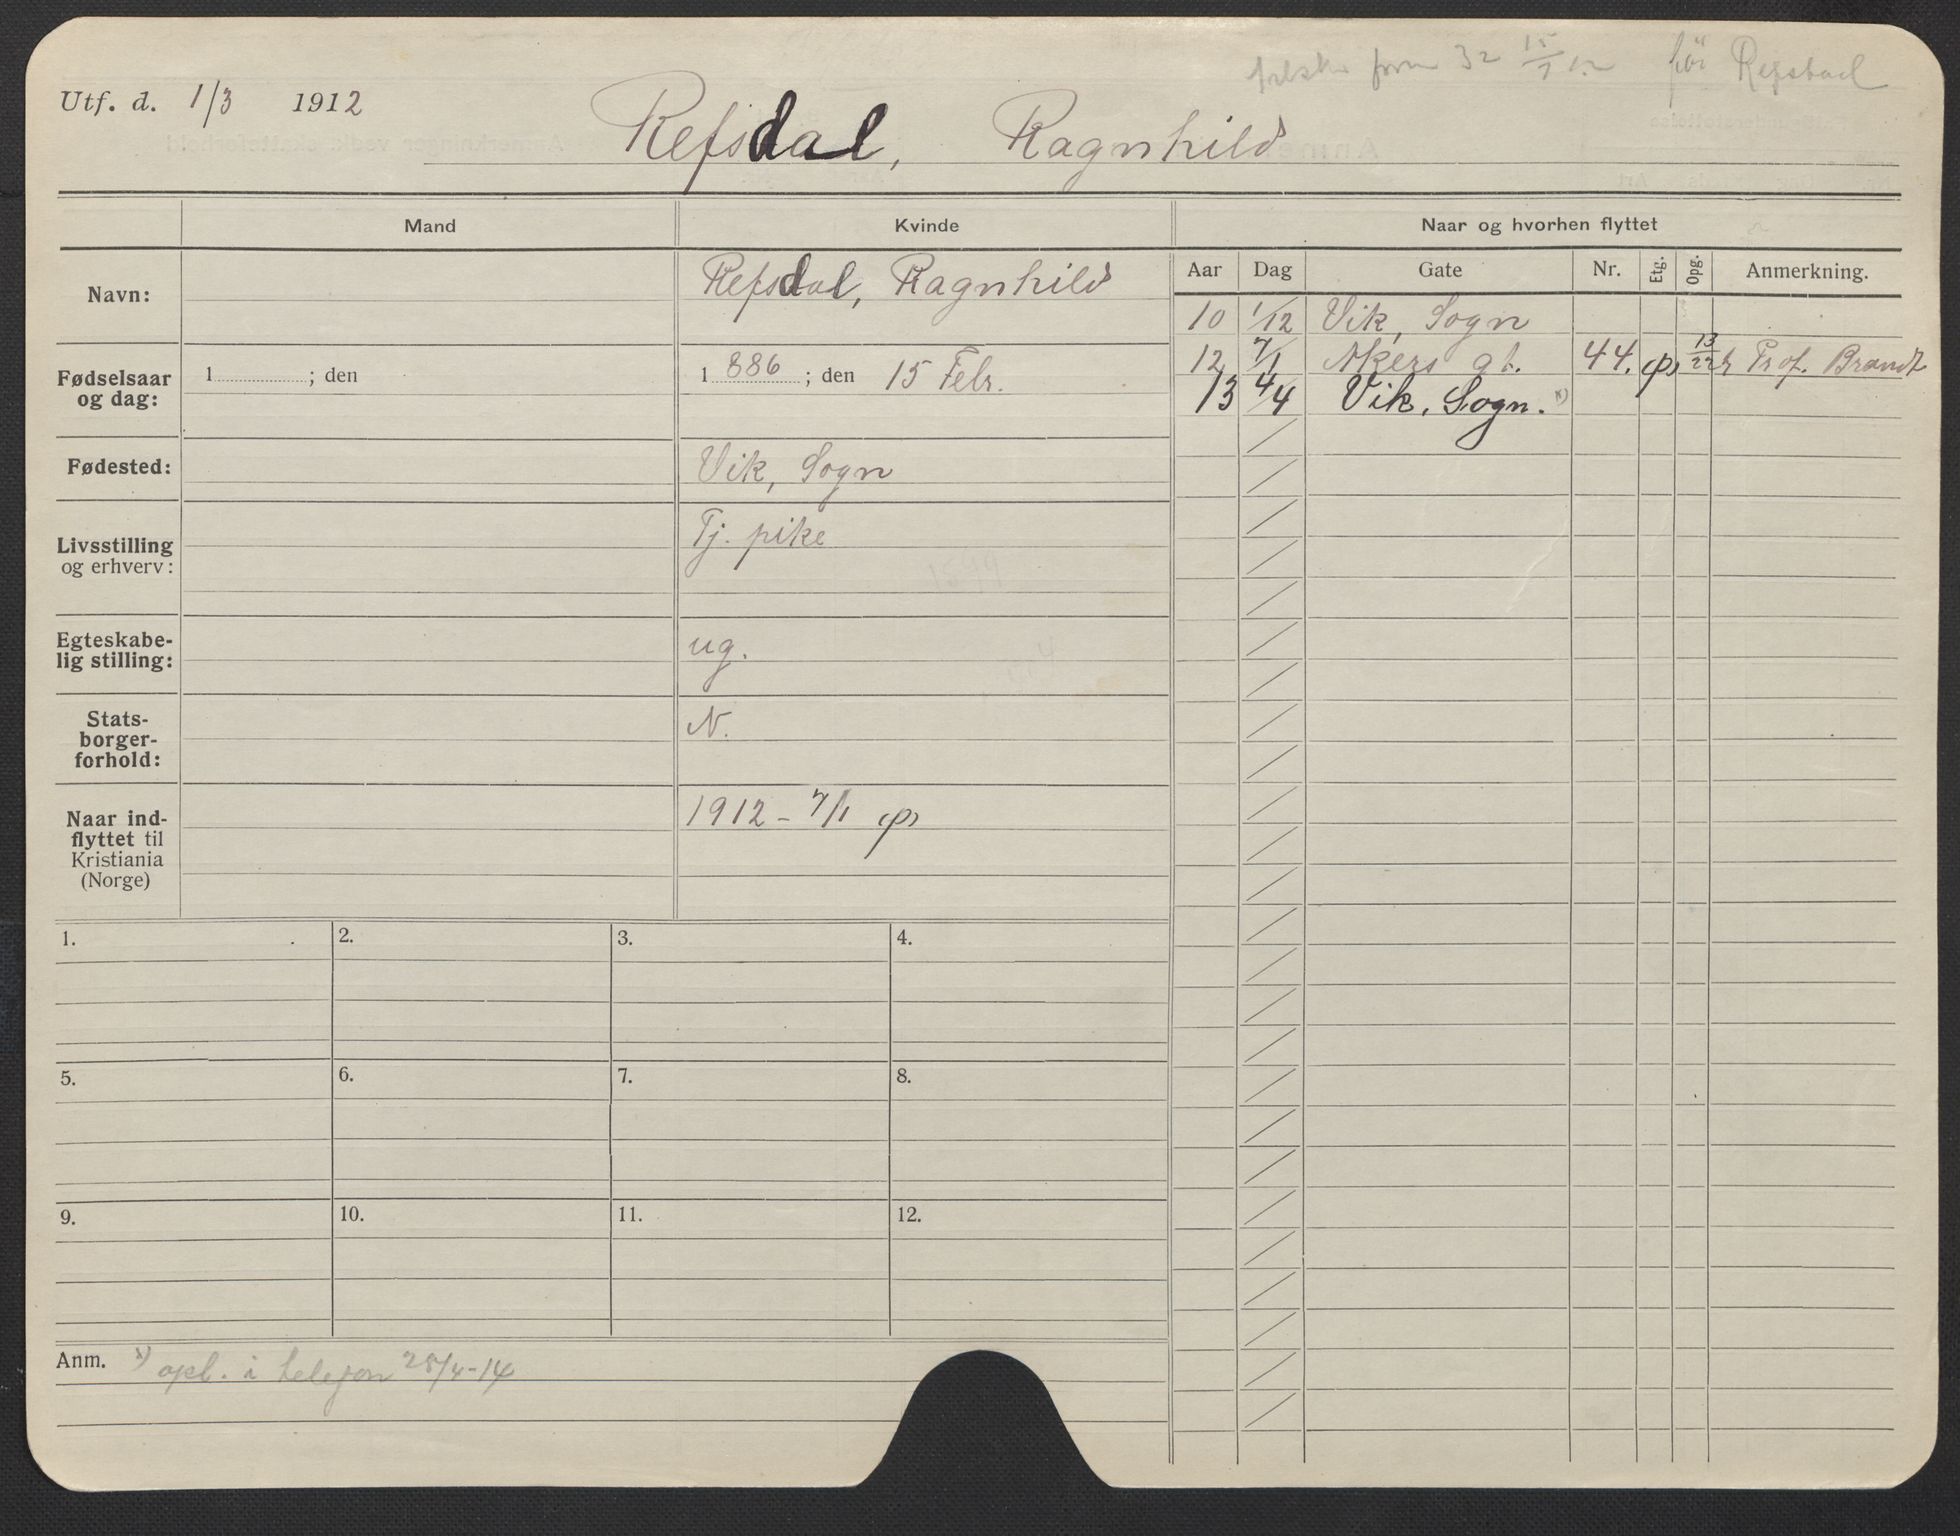 form 32 15/7 12 før Refsdal
Utf. d. 1/3 1912
Refsdal, Ragnhild
Mand Kvinde Naar og hvorhen flyttet
Navn: Refsdal, Ragnhild
Aar Dag Gate Nr. Etg. Opg. Anmerkning.
10 1/12 Vik, Sogn
12 7/1 Akers gt. 44. 13/22 Prof. Brandt
13 4/4 Vik, Sogn. x)
Fødselsaar og dag: 1 ; den 1886 ; den 15 Febr.
Fødested: Vik, Sogn
Livsstilling og erhverv: Tj. pike
Egteskabe-
lig stilling: ug.
Stats-
borger-
forhold: N.
Naar ind-
flyttet til
Kristiania
(Norge) 1912 - 7/1
1. 2. 3. 4.
5. 6. 7. 8.
9. 10. 11. 12.
Anm. x) opl. i telefon 25/4-14